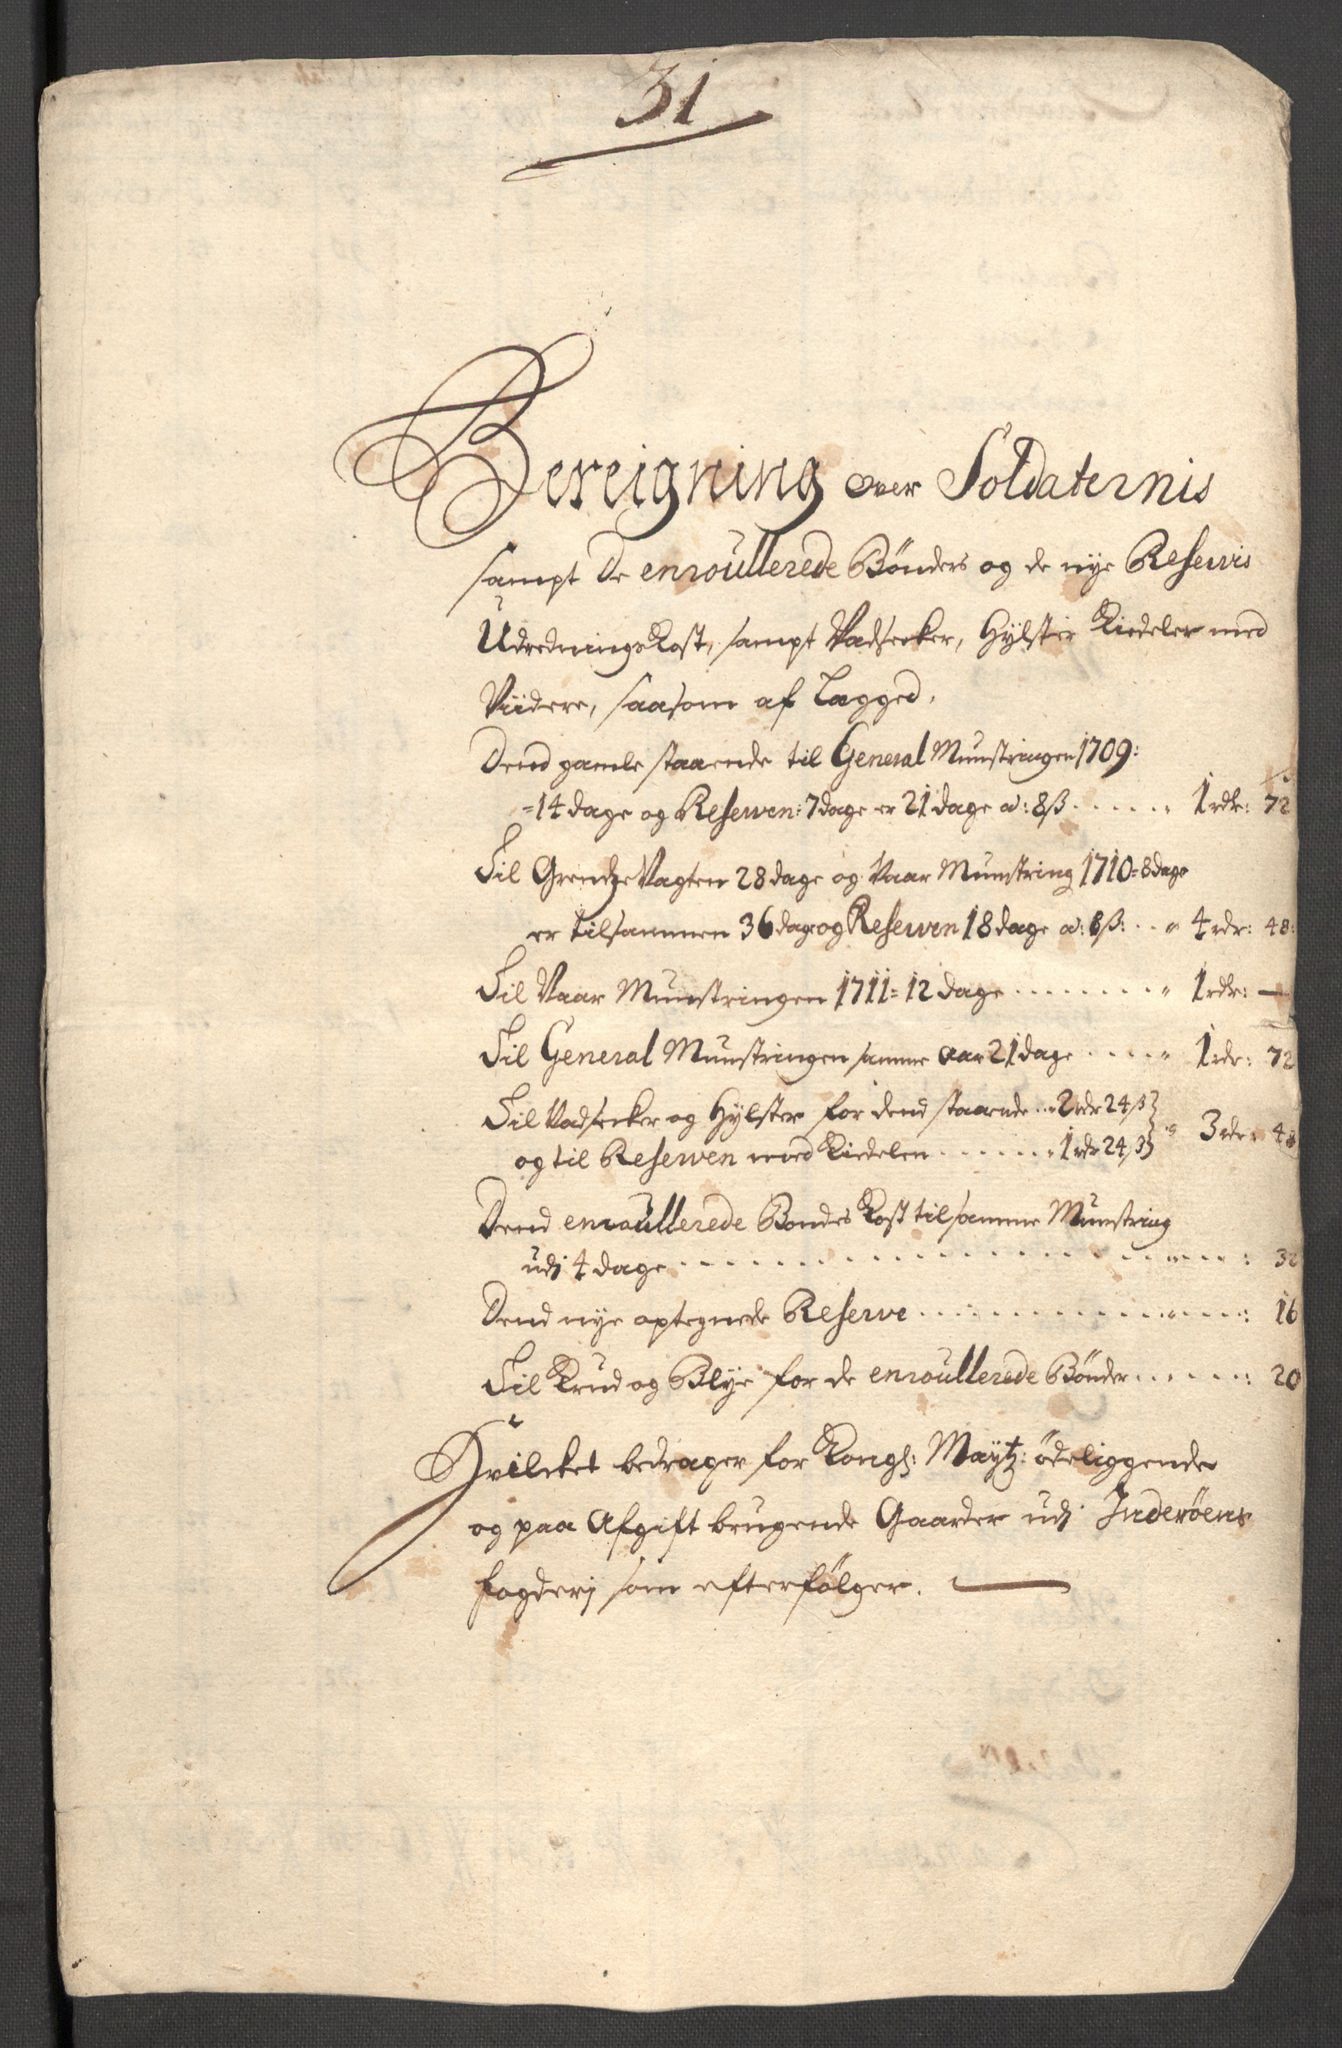 31
Bereigning over Soldaternis
sampt De enroullerede Bønders og de nÿe Reservis
Udrednings Kost, sampt Vadsecker, Hÿlster Kiedeler med
Viidere, saasom af Lægged,
Dend gamle staaende til General Munstringen 1709:
=14 dage og Reserven: 7 dage er 21 dage a: 8ß ...... 1 rdr: 72
Til Grendze Vagten 28 dage og Vaar Munstring 1710 = 8 dage
er tilsammen 36 dage og Reserven 18 dage a: 8ß: ... 4 rdr: 48:
Til Vaar Munstringen 1711 = 12 dage ........ 1 rdr: —
Til General Munstringen samme aar 21 dage ..... 1 rdr: 72
Til Vadsecker og Hÿlster for dend staaende ... 2 rdr 24 ß
og til Reserven med Kiedelen ....... 1 rdr 24 ß } 3 rdr: 48
Dend enroullerede Bondes Kost til samme Munstring
udj 4 dage .................. : 32
Dend nÿe optegnede Reserve ............ : 16
Til Krud og Blÿe for de enroullerede Bønder ...... : 20
Hvilcket bedrager for Kongl: Maÿtz: ødeliggende
og paa Afgift brugende Gaarder udj Inderøens
fogderj som efterfølger. —